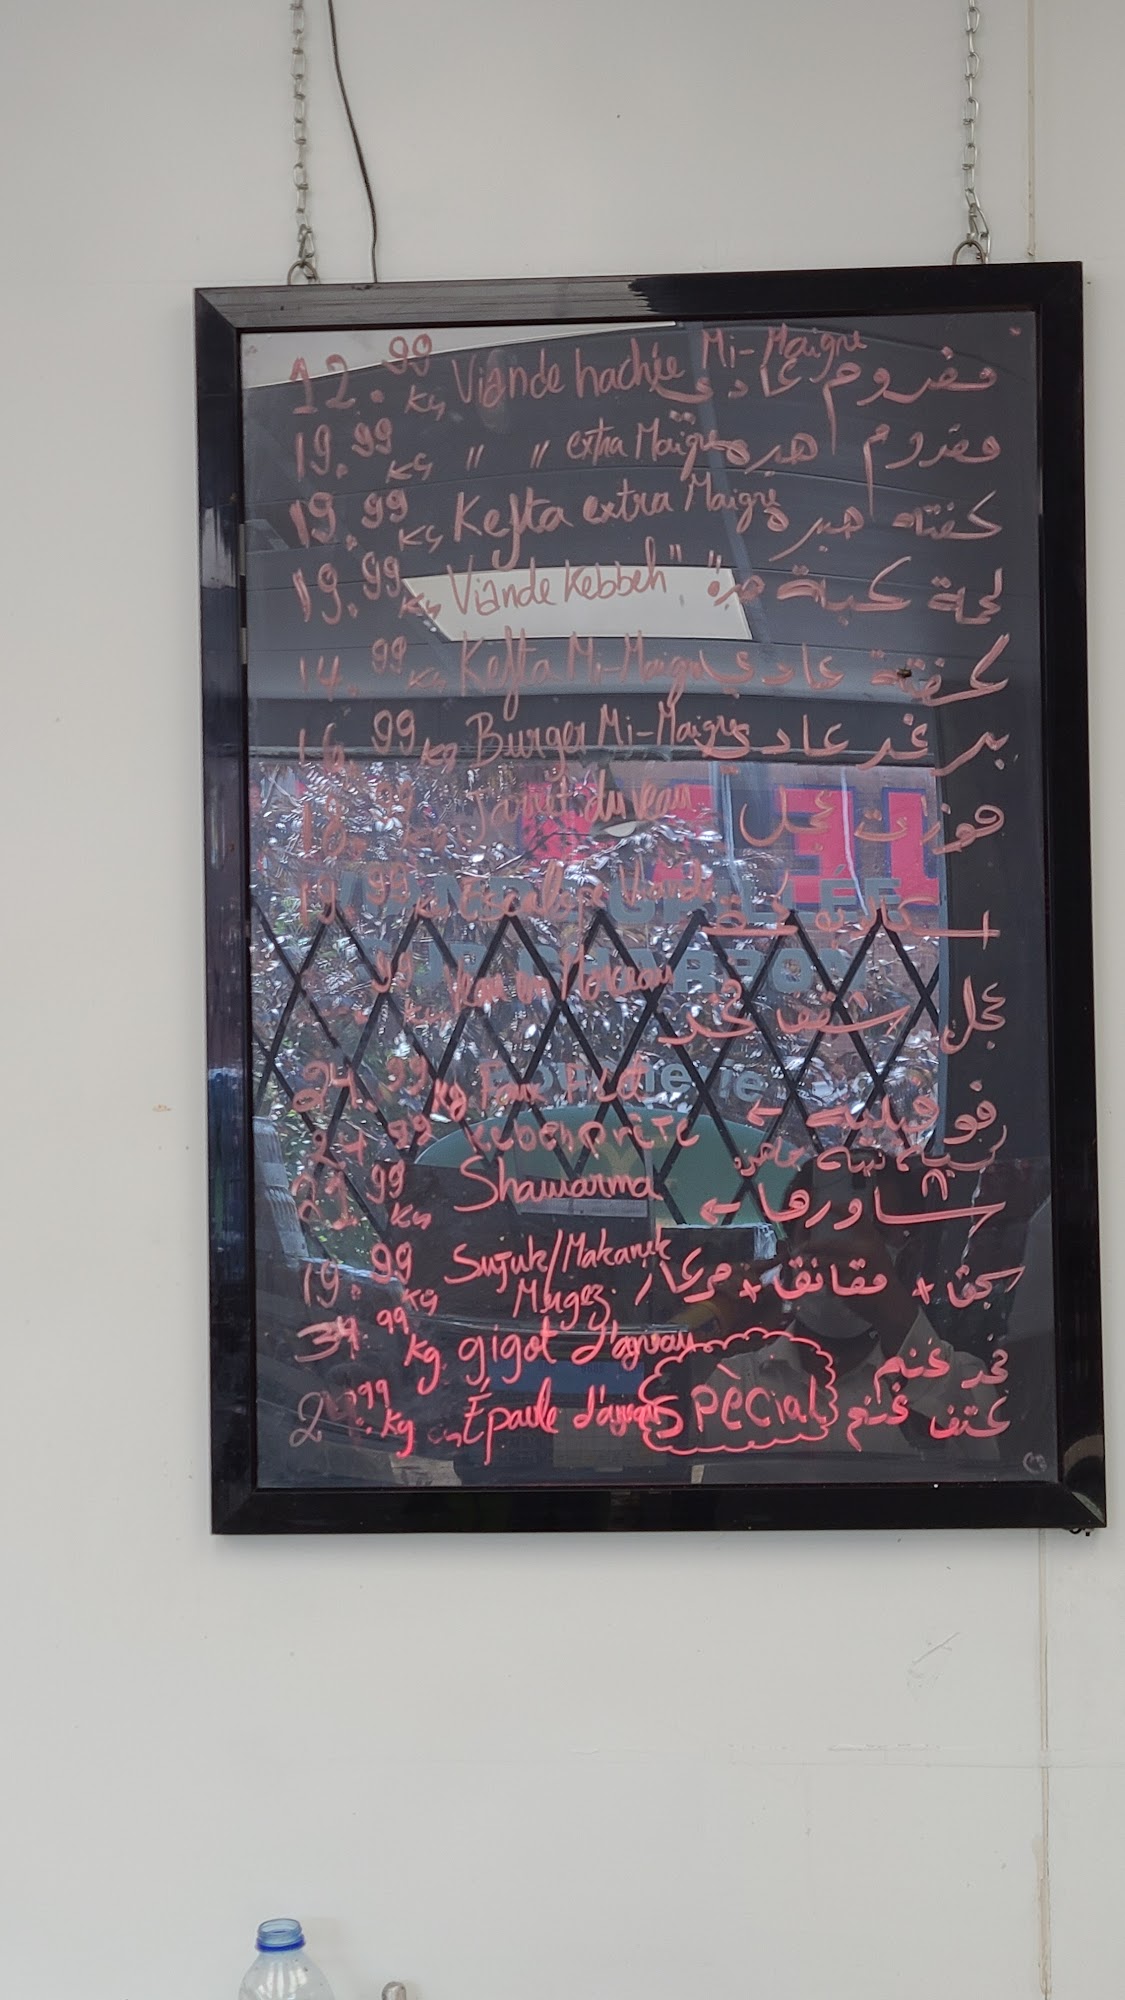 12.99 Kg Viande hachée Mi-Maigre مفروم عادي
19.99 Kg " " extra Maigre مفروم هبره
19.99 Kg Kefta extra Maigre كفته هبره
19.99 Kg Viande Kebbeh " لحمة كبة هبرة
14.99 Kg Kefta Mi-Maigre كفتة عادي
16.99 Kg Burger Mi-Maigre برغر عادي
18.99 Kg Jarret du Veau موزات عجل
19.99 Kg Escalope Viande
.99 Veau en Morceau عجل شقف فخد
24.99 Kg Faux Filet فوفيليه
24.99
.99 Kg Shawarma شاورما
19.99 Kg Sujuk/Makanek سجق + مقانق + مرغاز
Mergez
39.99 Kg gigot d'agneau فخد غنم
2 .99 Kg Épaule d'agneau Spècial كتف غنم